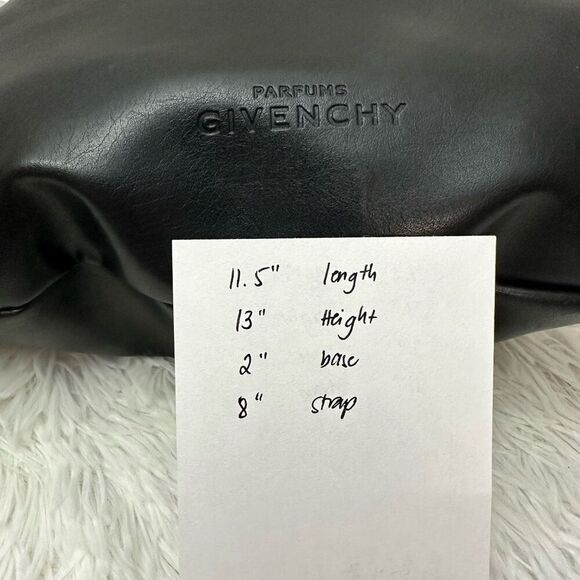 PARFUMS
GIVENCHY
11.5" length
13" Height
2" base
8" strap